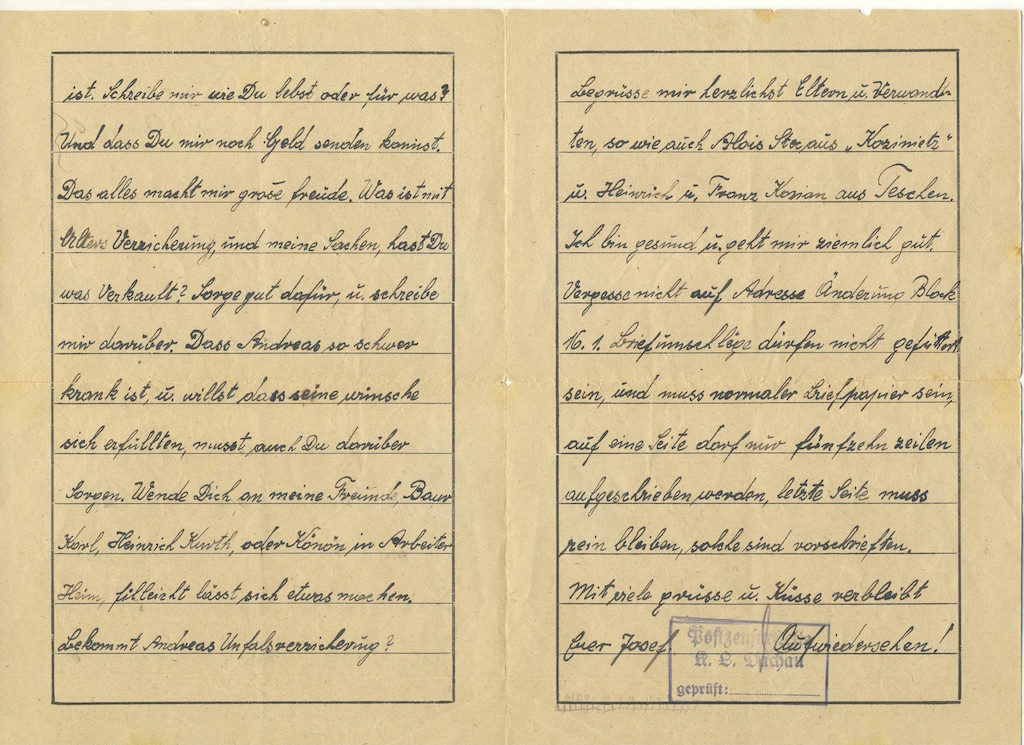 ist. Schreibe mir wie Du lebst oder für was?
Und dass Du mir noch Geld senden konnst.
Das alles macht mir grose freude. Was ist mit
Alters Verzicherung, und meine Sachen, hast Du
was Verkauft? Sorge gut dafür, u. schreibe
mir darüber. Dass Andreas so schwer
krank ist, u. willst dass seine wünsche
sich erfüllten, musst auch Du darüber
Sorgen. Wende Dich an meine Freunde, Baur
Karl, Heinrich Kurth, oder Könön, in Arbeiter
Heim, filleicht lässt sich etwas machen.
Bekommt Andreas Unfalsverzicherung?
Begrüsse mir herzlichst Eltern, u. Verwand-
ten, so wie auch Alois aus „Kozinietz"
u. Heinrich u. Franz aus Teschen.
Ich bin gesund u. geht mir ziemlich gut.
Vergesse nicht auf Adresse Änderung Block
16. 1. Briefumschläge dürfen nicht gefüttert
sein, und muss normaler Briefpapier sein,
auf eine Seite darf nur fünfzehn zeilen
aufgeschrieben werden, letzte Seite muss
rein bleiben, solche sind vorschrieften.
Mit viele grüsse u. Küsse verbleibt
Euer Josef. Aufwiedersehen!
K. L. Dachau
geprüft: